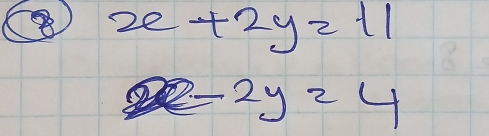 8 x + 2y = 11
x - 2y = 4